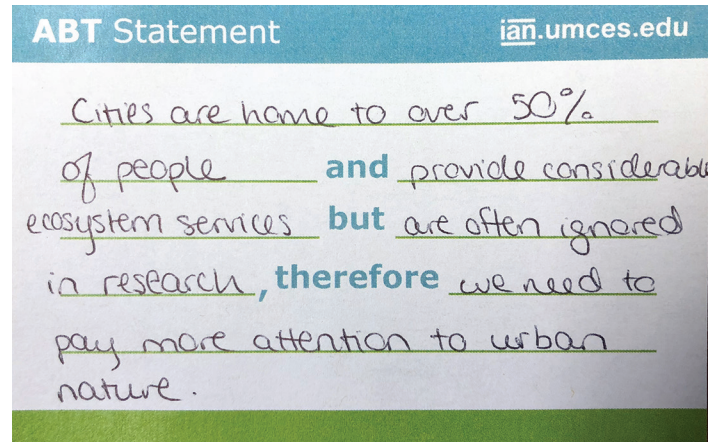 ABT Statement ian.umces.edu
Cities are home to over 50%
of people and provide considerable
ecosystem services but are often ignored
in research, therefore we need to
pay more attention to urban
nature.